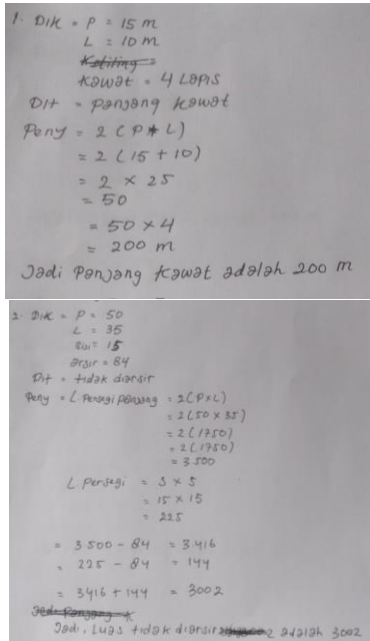 1. Dik = P = 15 m
L = 10 m
Kawat = 4 Lapis
Dit = Panjang kawat
Peny = 2 (P + L)
= 2 (15 + 10)
= 2 × 25
= 50
= 50 × 4
= 200 m
Jadi Panjang kawat adalah 200 m
2. Dik = P = 50
L = 35
sisi = 15
arsir = 84
Dit = tidak diarsir
Peny = L. Persegi Panjang = 2 (P×L)
= 2 (50 × 35)
= 2 (1750)
= 2 (1750)
= 3.500
L. Persegi = S × S
= 15 × 15
= 225
= 3500 - 84 = 3.416
= 225 - 84 = 144
= 3416 + 144 = 3002
Jadi, Luas tidak diarsir 2 adalah 3002